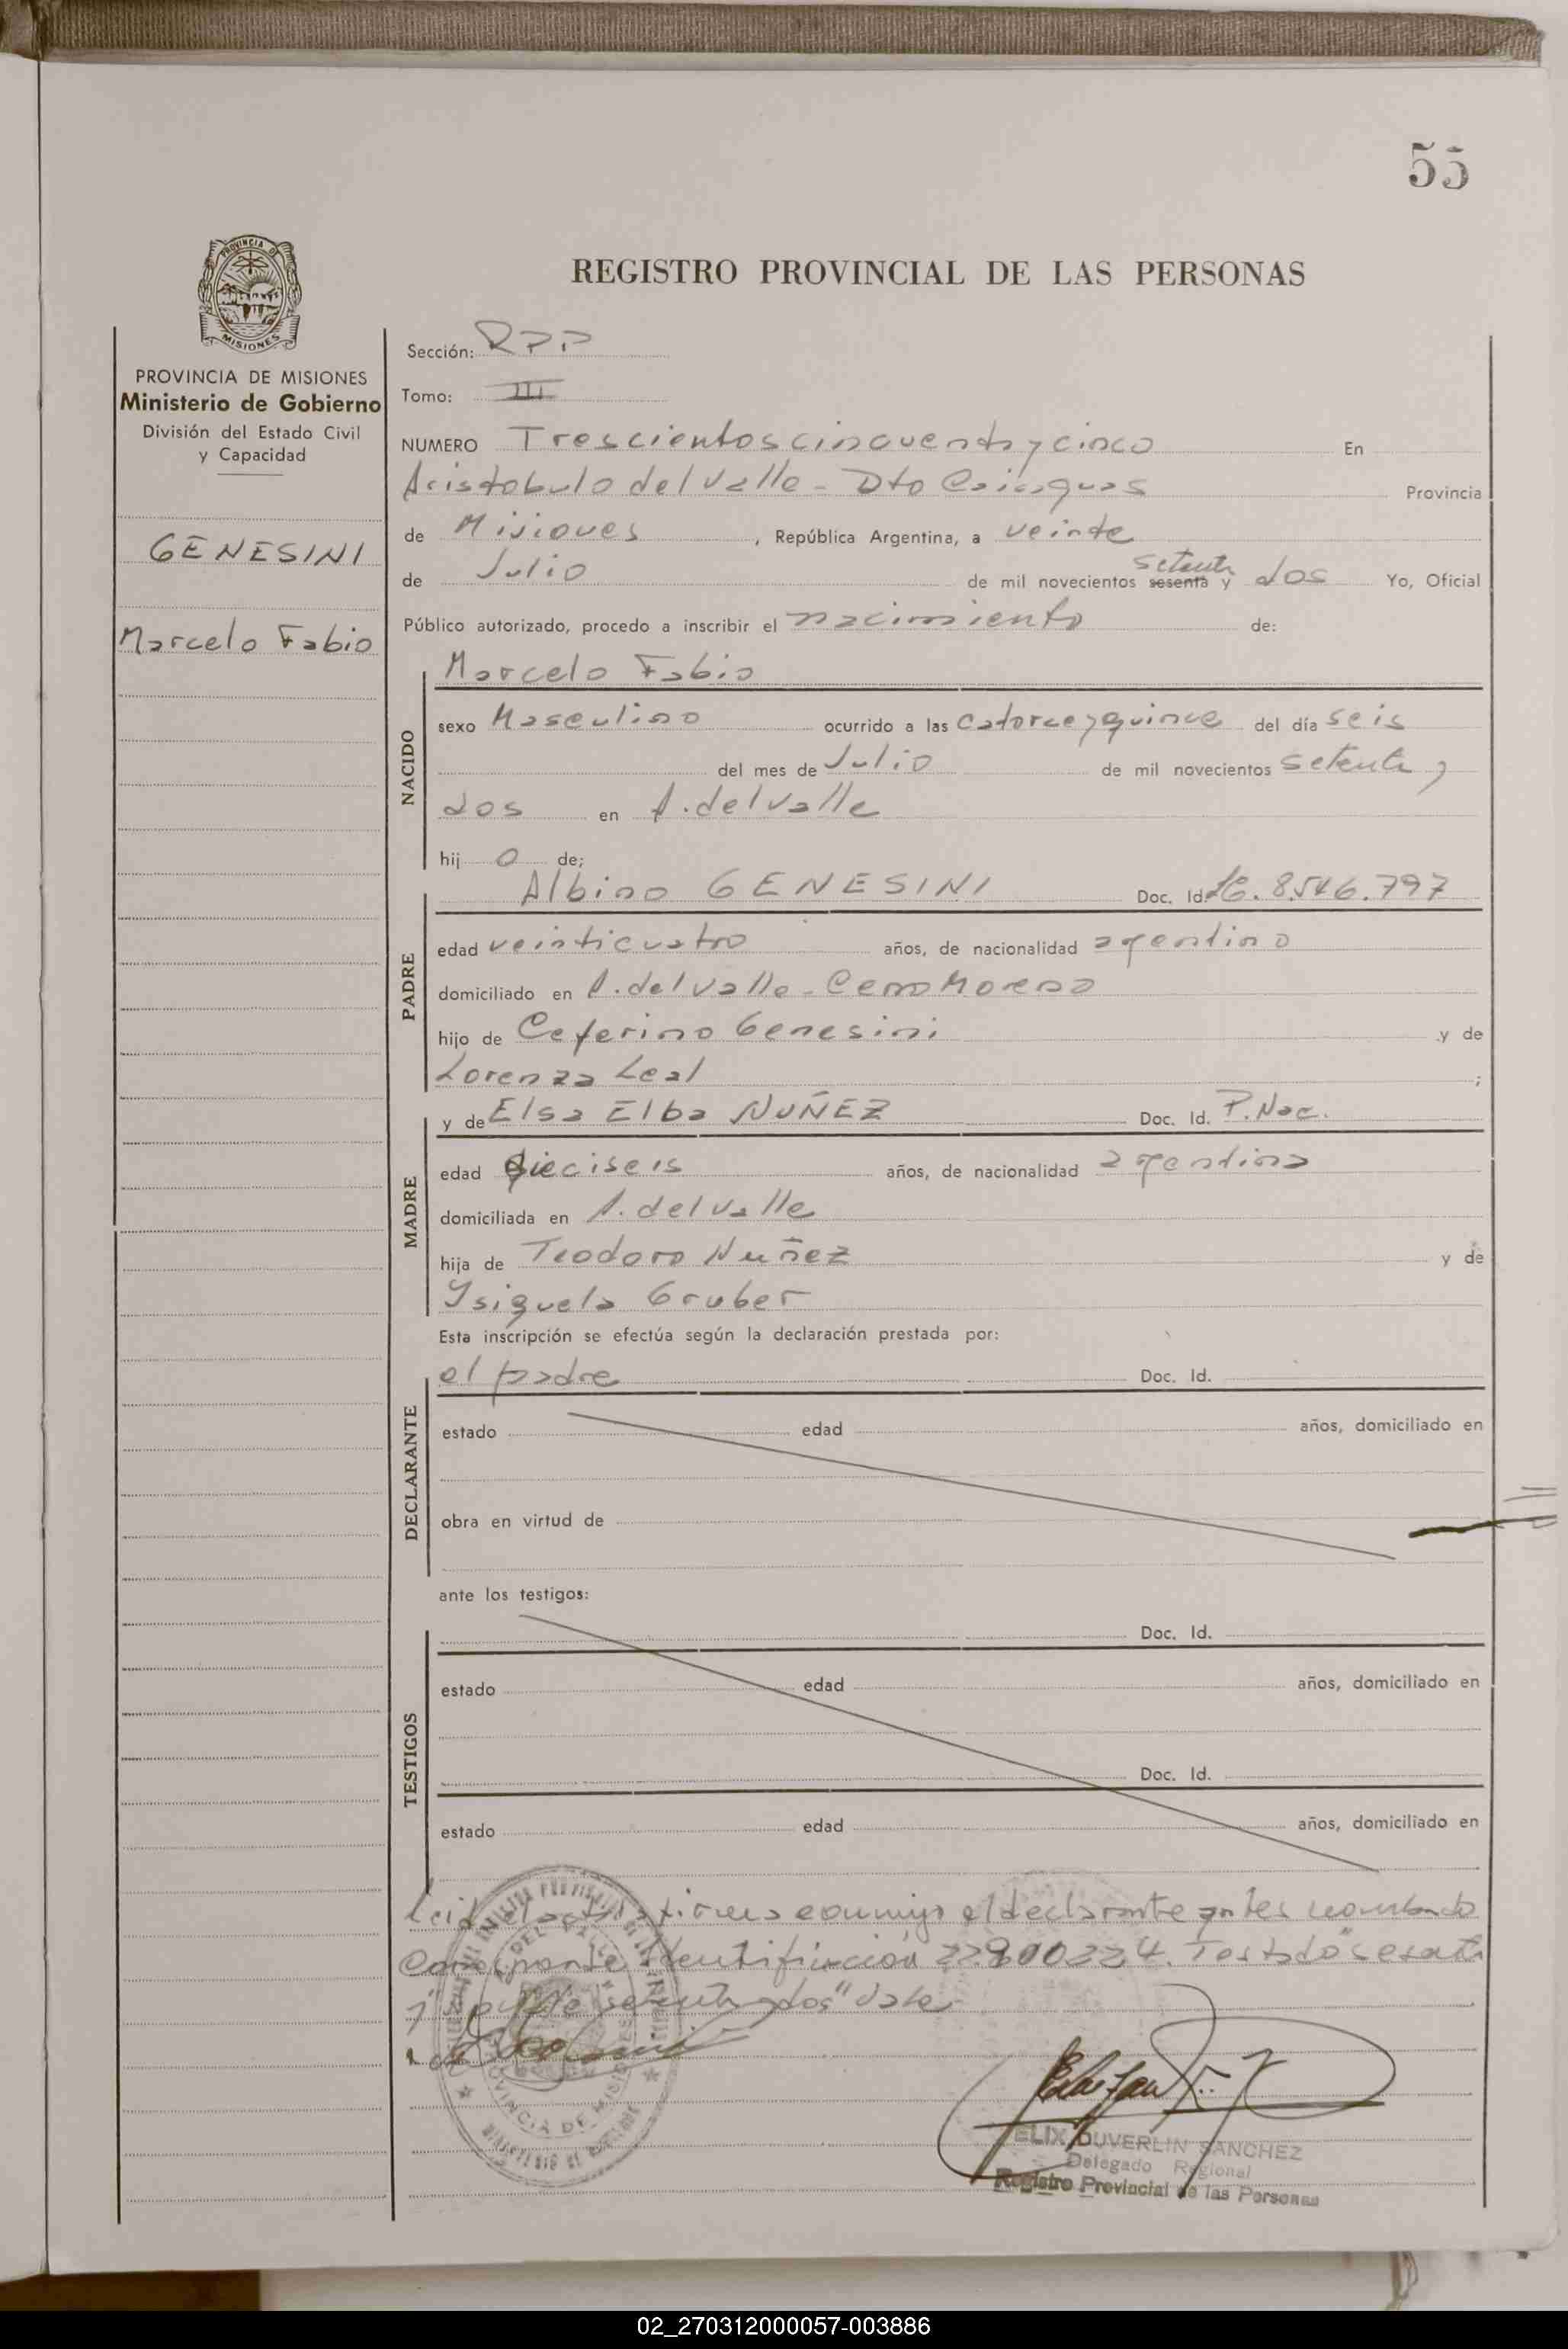 55
PROVINCIA DE
MISIONES
REGISTRO PROVINCIAL DE LAS PERSONAS
PROVINCIA DE MISIONES
Ministerio de Gobierno
División del Estado Civil
y Capacidad
GENESINI
Marcelo Fabio
Sección: RPP
Tomo: III
NUMERO Trescientos cincuenta y cinco En
Aristobulo del Valle - Dto Cainguas Provincia
de Misiones, República Argentina, a veinte
de Julio de mil novecientos sesenta setenta y dos Yo, Oficial
Público autorizado, procedo a inscribir el nacimiento de:
NACIDO
Marcelo Fabio
sexo Masculino ocurrido a las catorce y quince del día seis
del mes de Julio de mil novecientos setenta y
dos en A. del Valle
hij o de;
PADRE
Albino GENESINI Doc. Id. 8.546.797
edad veinticuatro años, de nacionalidad argentino
domiciliado en A. del Valle - Cerro Moreno
hijo de Ceferino Genesini y de
Lorenza Leal ;
MADRE
y de Elsa Elba NUÑEZ Doc. Id. P. Nac.
edad dieciseis años, de nacionalidad argentina
domiciliada en A. del Valle
hija de Teodoro Nuñez y de
Ysiguela Gruber
Esta inscripción se efectúa según la declaración prestada por:
DECLARANTE
el padre Doc. Id.
estado edad años, domiciliado en
obra en virtud de
ante los testigos:
TESTIGOS
Doc. Id.
estado edad años, domiciliado en
Doc. Id.
estado edad años, domiciliado en
Leida el acta firma conmigo el declarante antes nombrado
Corresponde Identificación 22.800224. Testado "sesenta
y" setenta y dos" vale
FELIX DUVERLIN SANCHEZ
Delegado Regional
Registro Provincial de las Personas
02_270312000057-003886